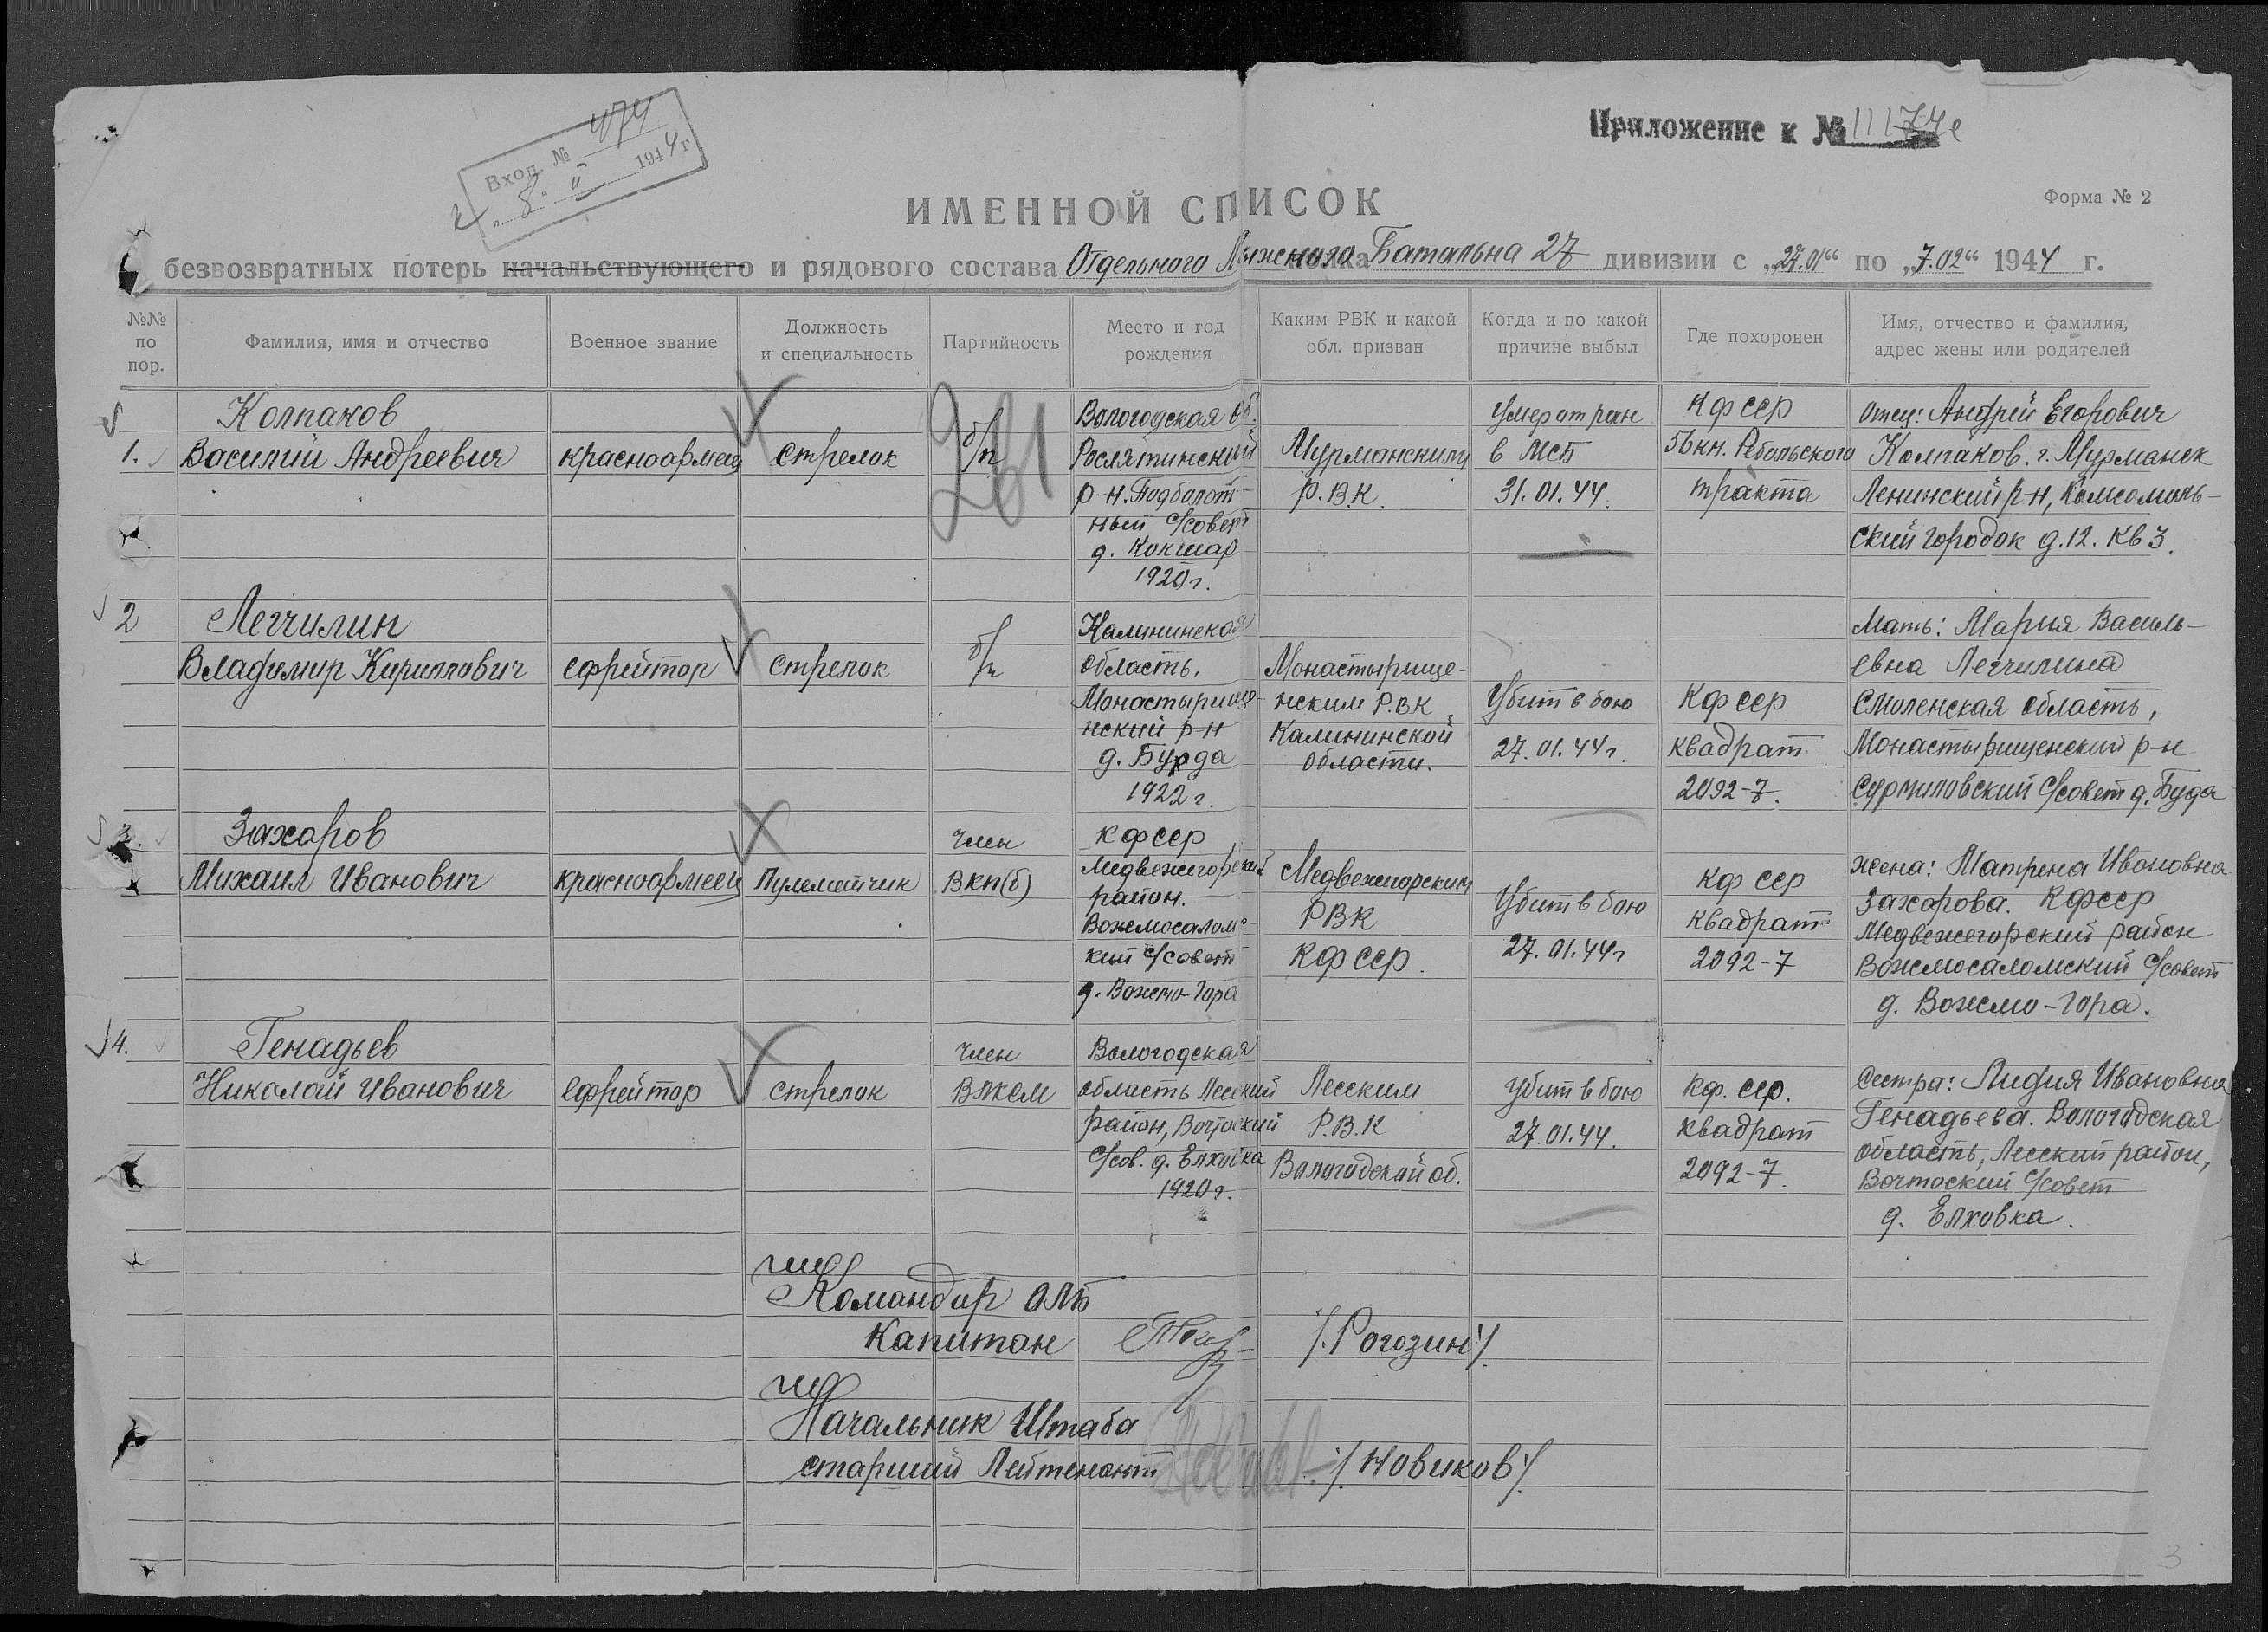 Вход. № 474
"8" II 1944 г.
Приложение к № 11174с
Форма № 2
ИМЕННОЙ СПИСОК
безвозвратных потерь начальствующего и рядового состава Отдельного Лыжного Баталь​на 27 дивизии с "27.01" по "7.02" 1944 г.
№№ по пор.
Фамилия, имя и отчество
Военное звание
Должность и специальность
Партийность
Место и год рождения
Каким РВК и какой обл. призван
Когда и по какой причине выбыл
Где похоронен
Имя, отчество и фамилия, адрес жены или родителей
261
1.
Колпаков
Василий Андреевич
красноармеец
стрелок
б/п
Вологодская об.
Рослятинский
р-н. Подболот-
ный С/совет
д. Кокшар
1920г.
Мурманским
Р.В.К.
Умер от ран
в МСБ
31.01.44.
КфССР
56км. Ребольского
тракта
Отец: Андрей Егорович
Колпаков. г. Мурманск
Ленинский р-н, Комсомоль-
ский городок д.12. кв 3.
2
Легчилин
Владимир Кириллович
ефрейтор
стрелок
б/п
Калининская
область.
Монастырище-
нский р-н
д. Буда
1922г.
Монастырище-
нским Р.ВК
Калининской
области.
Убит в бою
27.01.44г.
КфССР
квадрат
2092-7.
Мать: Мария Василь-
евна Легчилина
Смоленская область,
Монастырищенский р-н
С/совет д. Буда
3.
Захаров
Михаил Иванович
красноармеец
Пулеметчик
член
ВКП(б)
КфССР
Медвежегорский
район.
Вожмосаломс-
кий С/совет
д. Вожмо-Гора
Медвежегорским
РВК
КфССР.
Убит в бою
27.01.44г
КфССР
квадрат
2092-7
Жена: Матрена Ивановна
Захарова. КфССР
Медвежегорский район
Вожмосаломский С/совет
д. Вожмо-Гора.
4.
Генадьев
Николай Иванович
Ефрейтор
стрелок
член
ВЛКСМ
Вологодская
область Лесский
район, Вочтоский
С/сов. д. Елховка
1920г.
Лесским
Р.В.К
Вологодский об.
Убит в бою
27.01.44.
Кф.ССР.
квадрат
2092-7.
Сестра: Лидия Ивановна
Генадьева. Вологодская
область, Лесский район,
Вочтоский С/совет
д. Елховка.
Командир ОЛБ
Капитан /.Рогозин/.
Начальник Штаба
старший Лейтенант /.Новиков/.
3